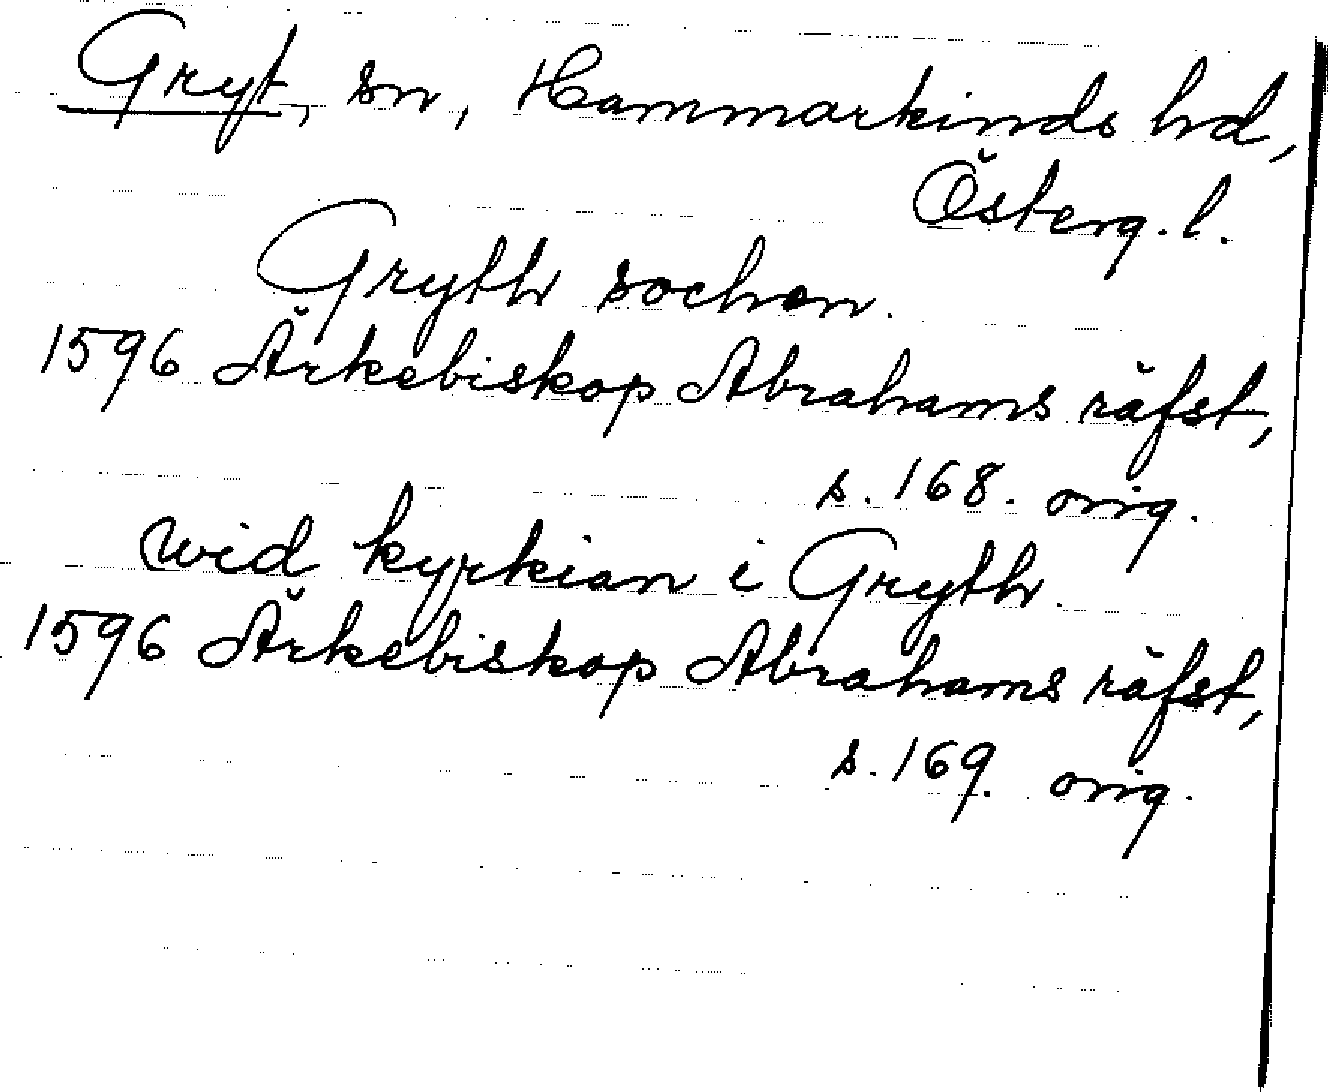 Gryt, sn, Hammarkinds hd,
Österg. l.
Gryth sochen.
1596 Ärkebiskop Abrahams räfst,
s. 168. orig.
wid kyrkian i Gryth.
1596 Ärkebiskop Abrahams räfst,
s. 169. orig.